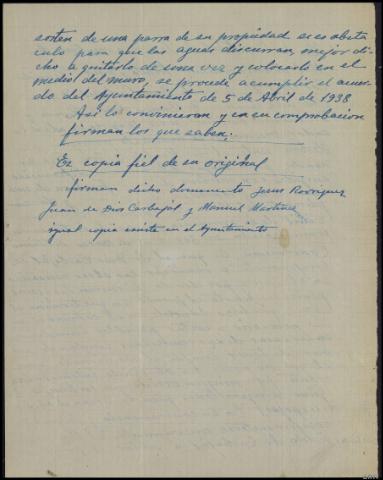 sosten de una parra de su propiedad si es obsta
culo para que las aguas discurran, mejor di-
cho a quitarlo de una vez y colocarlo en el
medio del muro, se procede a cumplir el acuer-
do del Ayuntamiento de 5 de Abril de 1938
Asi lo convinieron y en su comprobacion
firman los que saben.
Es copia fiel de su original
firman dicho documento Jesus Rodriguez
Juan de Dios Carbajal y Manuel Martinez
igual copia existe en el Ayuntamiento